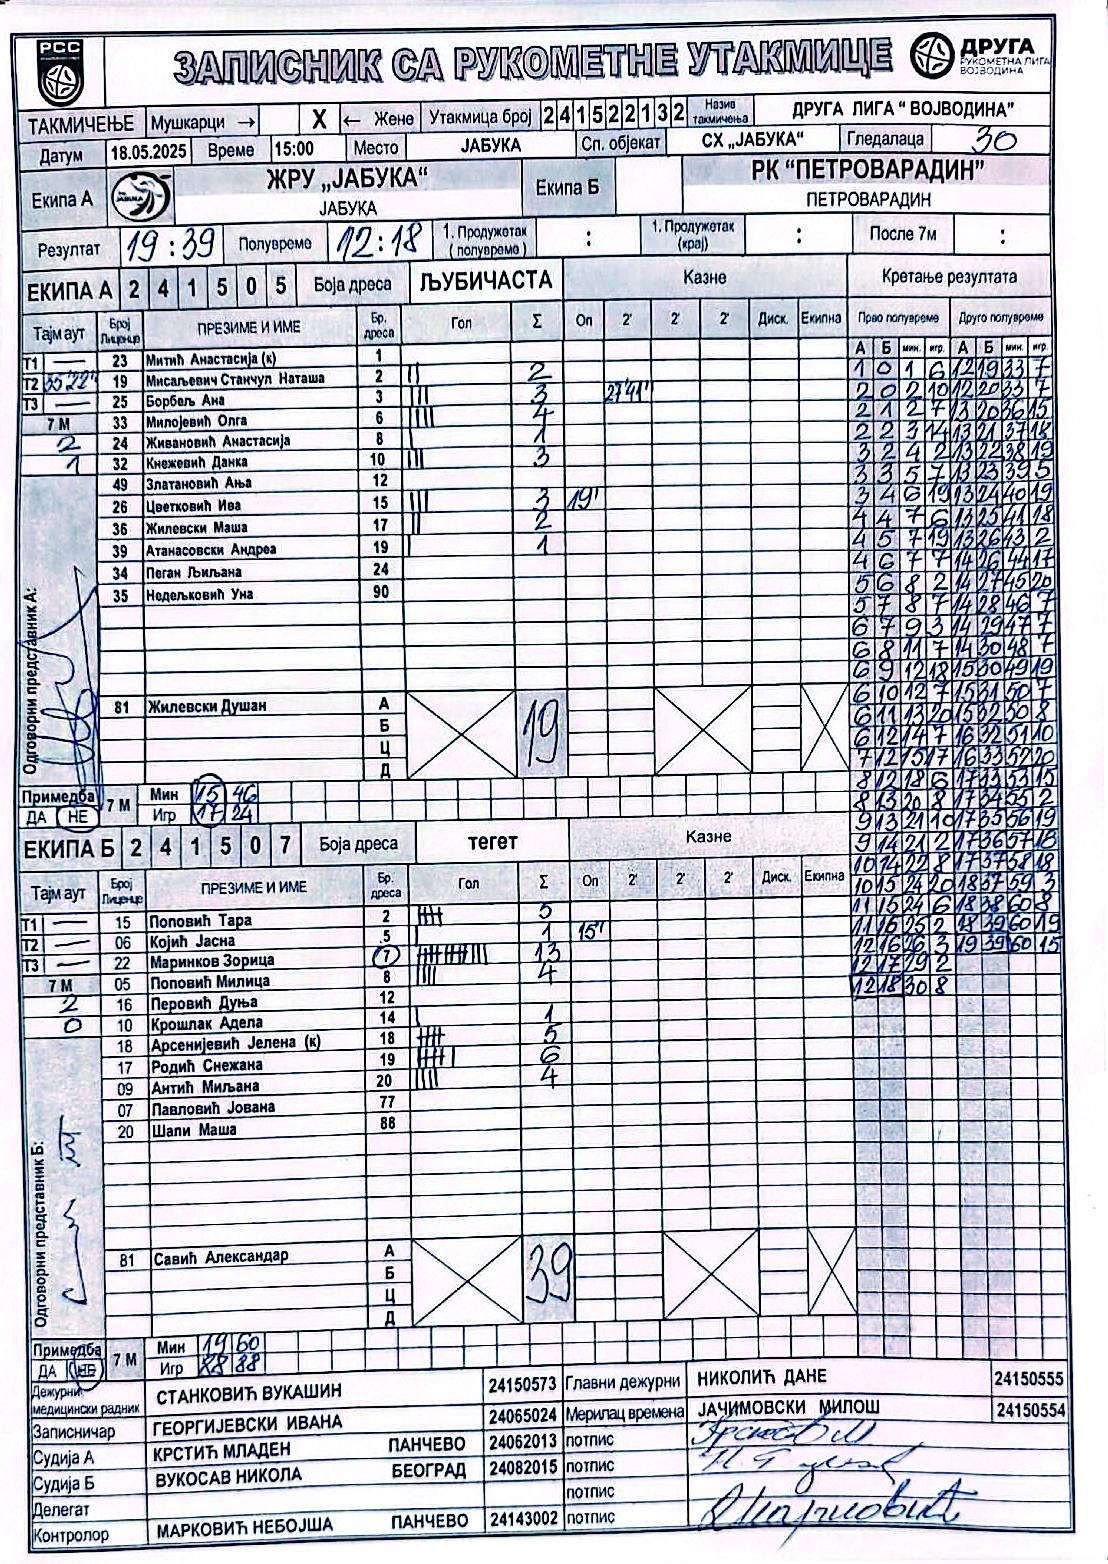 РСС
ЗАПИСНИК СА РУКОМЕТНЕ УТАКМИЦЕ
ДРУГА
РУКОМЕТНА ЛИГА
ВОЈВОДИНА
ТАКМИЧЕЊЕ Мушкарци → X ← Жене Утакмица број 241522132 Назив такмичења ДРУГА ЛИГА "ВОЈВОДИНА"
Датум 18.05.2025 Време 15:00 Место ЈАБУКА Сп. објекат СХ „ЈАБУКА“ Гледалаца 30
Екипа А ЖРУ „ЈАБУКА“ ЈАБУКА Екипа Б РК “ПЕТРОВАРАДИН” ПЕТРОВАРАДИН
Резултат 19:39 Полувреме 12:18 1. Продужетак (полувреме) : 1. Продужетак (крај) : После 7м :
ЕКИПА А 2 4 1 5 0 5 Боја дреса ЉУБИЧАСТА Казне Кретање резултата
Тајм аут Број Лиценце ПРЕЗИМЕ И ИМЕ Бр. дреса Гол Σ Оп 2' 2' 2' Диск. Екипна Прво полувреме Друго полувреме
А Б мин. игр. А Б мин. игр.
Т1 — 23 Митић Анастасија (к) 1
Т2 35'22" 19 Мисаљевич Станчул Наташа 2 || 2
Т3 — 25 Борбељ Ана 3 ||| 3 27'41"
7 М 33 Милојевић Олга 6 |||| 4
2 24 Живановић Анастасија 8 | 1
1 32 Кнежевић Данка 10 ||| 3
49 Златановић Ања 12
26 Цветковић Ива 15 ||| 3 19'
36 Жилевски Маша 17 || 2
39 Атанасовски Андреа 19 | 1
34 Пеган Љиљана 24
35 Недељковић Уна 90
Одговорни представник А:
81 Жилевски Душан А 19
Б
Ц
Д
Примедба ДА НЕ 7 М Мин 15 46
Игр 17 24
1 0 1 6 12 19 33 7
2 0 2 10 12 20 33 7
2 1 2 7 13 20 36 15
2 2 3 14 13 21 37 18
3 2 4 2 13 22 38 19
3 3 5 7 13 23 39 5
3 4 6 19 13 24 40 19
4 4 7 6 13 25 41 18
4 5 7 19 13 26 43 2
4 6 7 7 14 26 44 17
5 6 8 2 14 27 45 20
5 7 8 7 14 28 46 7
6 7 9 3 14 29 47 7
6 8 11 7 14 30 48 7
6 9 12 18 15 30 49 19
6 10 12 7 15 31 50 7
6 11 13 20 15 32 50 8
6 12 14 7 16 32 51 10
7 12 15 17 16 33 52 20
8 12 18 6 17 33 53 15
8 13 20 8 17 34 55 2
9 13 21 10 17 35 56 19
9 14 21 2 17 36 57 18
10 14 22 8 17 37 58 18
10 15 24 20 18 37 59 3
11 15 24 6 18 38 60 8
11 16 25 2 18 39 60 19
12 16 26 3 19 39 60 15
12 17 29 2
12 18 30 8
ЕКИПА Б 2 4 1 5 0 7 Боја дреса тегет Казне
Тајм аут Број Лиценце ПРЕЗИМЕ И ИМЕ Бр. дреса Гол Σ Оп 2' 2' 2' Диск. Екипна
Т1 — 15 Поповић Тара 2 5
Т2 — 06 Којић Јасна 5 | 1 15'
Т3 — 22 Маринков Зорица 7 13
7 М 05 Поповић Милица 8 |||| 4
2 16 Перовић Дуња 12
0 10 Крошлак Адела 14 | 1
18 Арсенијевић Јелена (к) 18 5
17 Родић Снежана 19 6
09 Антић Миљана 20 |||| 4
07 Павловић Јована 77
20 Шапи Маша 88
Одговорни представник Б:
81 Савић Александар А 39
Б
Ц
Д
Примедба ДА НЕ 7 М Мин 19 60
Игр 88 88
Дежурни медицински радник СТАНКОВИЋ ВУКАШИН 24150573 Главни дежурни НИКОЛИЋ ДАНЕ 24150555
Записничар ГЕОРГИЈЕВСКИ ИВАНА 24065024 Мерилац времена ЈАЧИМОВСКИ МИЛОШ 24150554
Судија А КРСТИЋ МЛАДЕН ПАНЧЕВО 24062013 потпис
Судија Б ВУКОСАВ НИКОЛА БЕОГРАД 24082015 потпис
Делегат потпис
Контролор МАРКОВИЋ НЕБОЈША ПАНЧЕВО 24143002 потпис